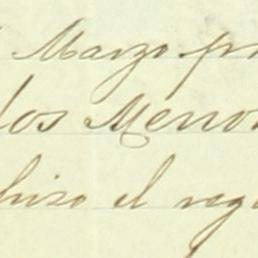 Marzo pr
los Menor
hiso el reg